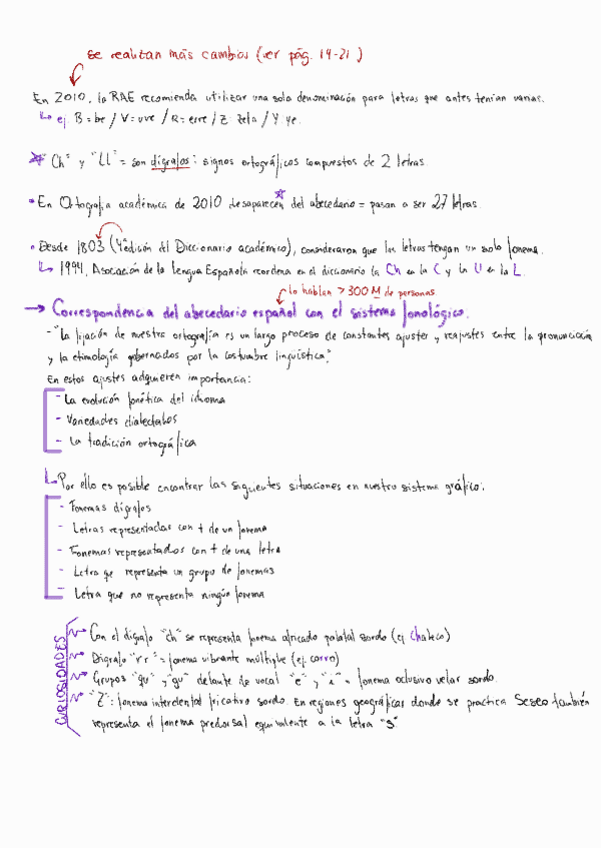 se realizan más cambios (ver pág. 19-21)
En 2010, la RAE recomienda utilizar una sola denominación para letras que antes tenían varias.
ej. B = be / V = uve / R = erre / Z: zeta / Y: ye.
"Ch" y "Ll" = son dígrafos: signos ortográficos compuestos de 2 letras
- En Ortografía académica de 2010 desaparecen del abecedario = pasan a ser 27 letras.
- Desde 1803 (4ª edición del Diccionario académico), consideraron que las letras tengan un solo fonema.
1994, Asociación de la Lengua Española reordena en el diccionario la Ch en la C y la Ll en la L.
lo hablan > 300 M de personas.
→ Correspondencia del abecedario español con el sistema fonológico.
- "La fijación de nuestra ortografía es un largo proceso de constantes ajustes y reajustes entre la pronunciación
y la etimología gobernados por la costumbre lingüística."
En estos ajustes adquieren importancia:
- La evolución fonética del idioma
- Variedades dialectales
- La tradición ortográfica
Por ello es posible encontrar las siguientes situaciones en nuestro sistema gráfico:
- Fonemas dígrafos
- Letras representadas con + de un fonema
- Fonemas representados con + de una letra
- Letra que representa un grupo de fonemas
- Letra que no representa ningún fonema
CURIOSIDADES
Con el dígrafo "ch" se representa fonema africado palatal sordo (ej. Chaleco)
Dígrafo "rr" = fonema vibrante múltiple (ej. carro)
Grupos "qu", "gu" delante de vocal "e", "i" = fonema oclusivo velar sordo.
"Z": fonema interdental fricativo sordo. En regiones geográficas donde se practica Seseo también
representa el fonema predorsal equivalente a la letra "s"